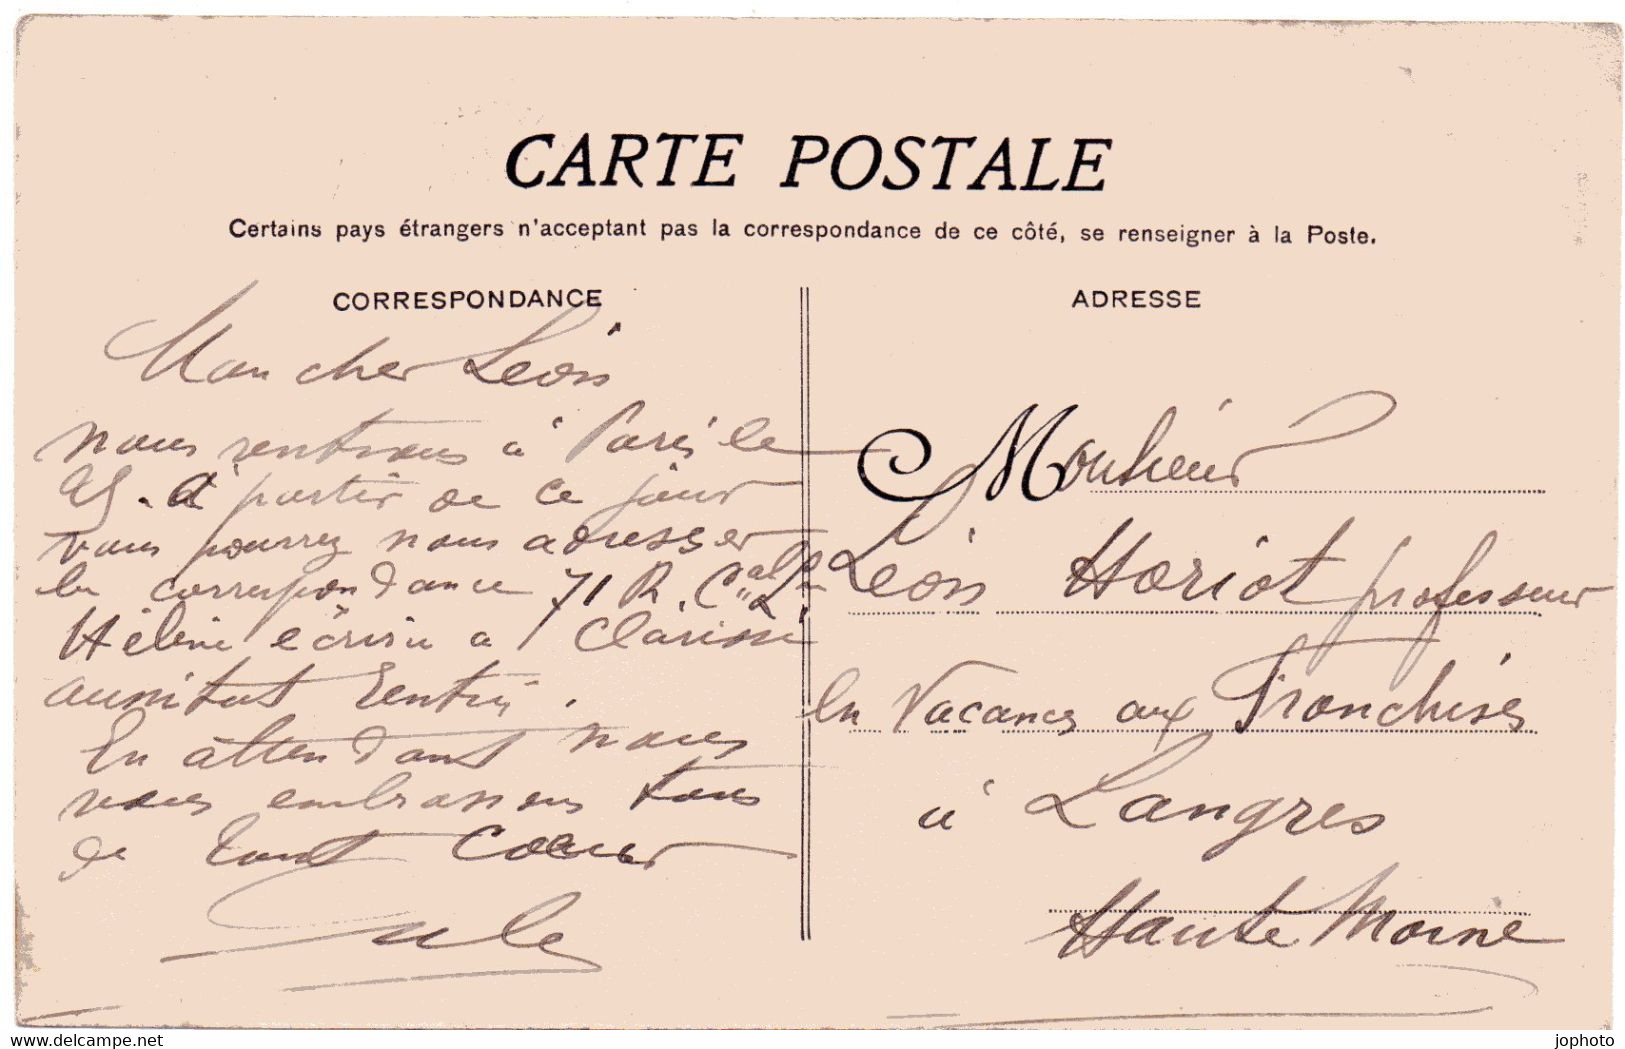 CARTE POSTALE
Certains pays étrangers n'acceptent pas la correspondance de ce côté, se renseigner à la Poste.
CORRESPONDANCE
Mon cher Léon
nous rentrons à Paris le
25. A partir de ce jour
vous pourrez nous adresser
la correspondance 71 R. C^al L.
Hélène écrira a Clarisse
aussitot rentrée.
En attendant nous
vous embrassons tous
de tout coeur
Jules
ADRESSE
Monsieur
Léon Horiot professeur
en Vacances aux Franchises
à Langres
Haute Marne
www.delcampe.net
jophoto